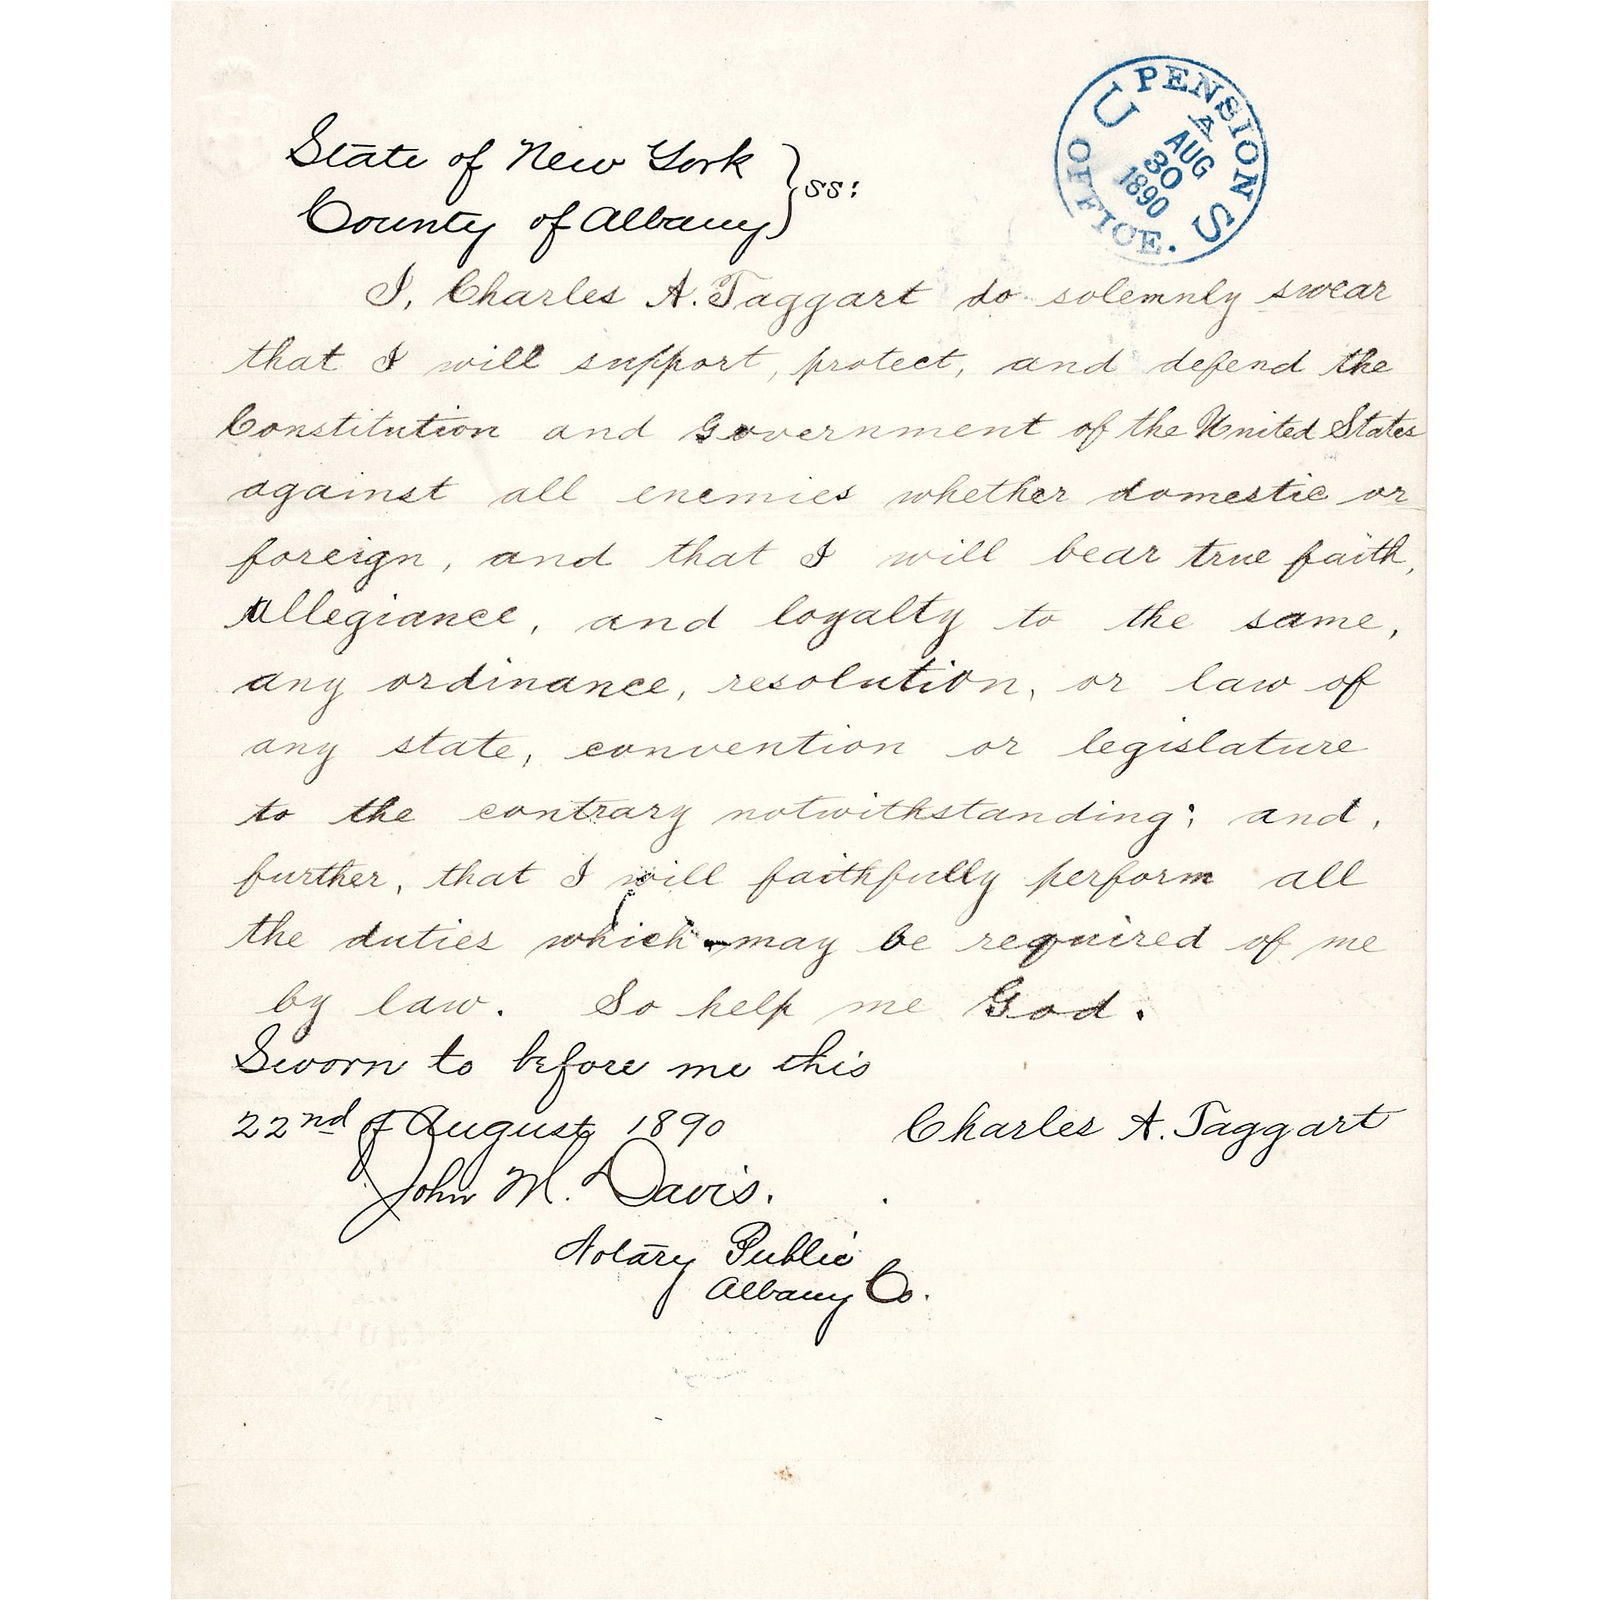 U S PENSION OFFICE.
A
AUG
30
1890
State of New York
County of Albany } ss:
I, Charles A. Taggart do solemnly swear
that I will support, protect, and defend the
Constitution and Government of the United States
against all enemies whether domestic or
foreign, and that I will bear true faith,
allegiance, and loyalty to the same,
any ordinance, resolution, or law of
any state, convention or legislature
to the contrary notwithstanding; and,
further, that I will faithfully perform all
the duties which may be required of me
by law. So help me God.
Sworn to before me this
22nd of August 1890
Charles A. Taggart
John M. Davis.
Notary Public
Albany Co.